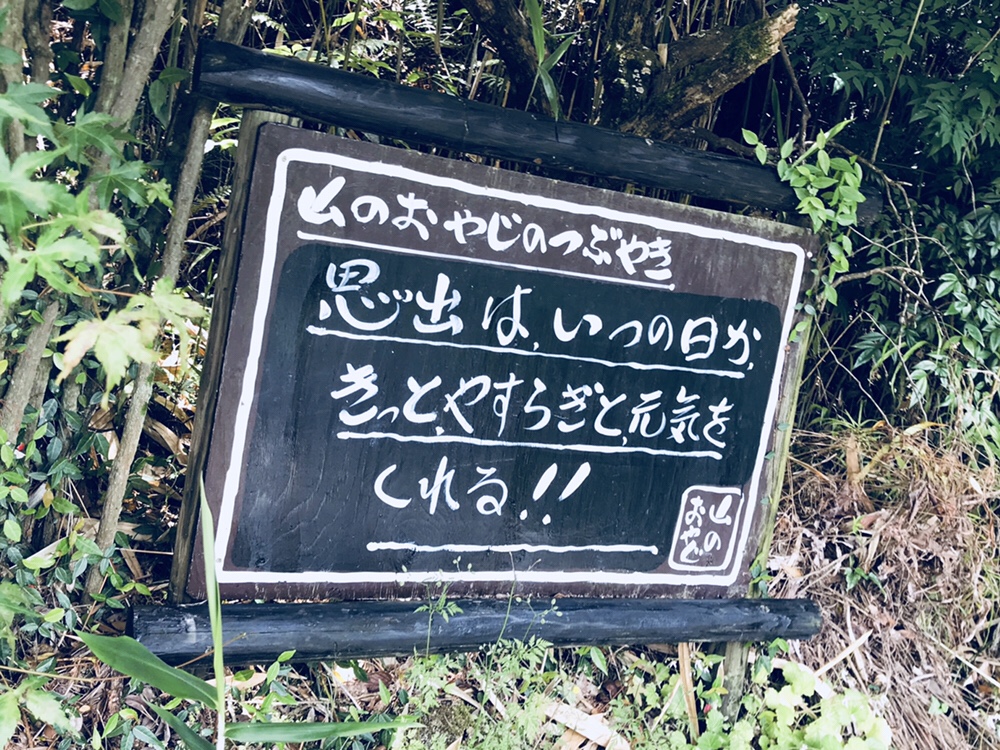 山のおやじのつぶやき
思い出は、いつの日か、
きっと、やすらぎと、元気を
くれる!!
山の
おやじ